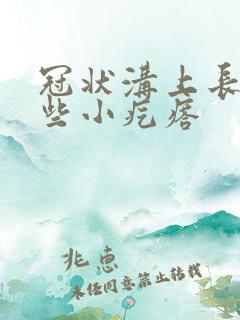 冠状溝上長
些小疙瘩
兆惠
未经同意禁止转载